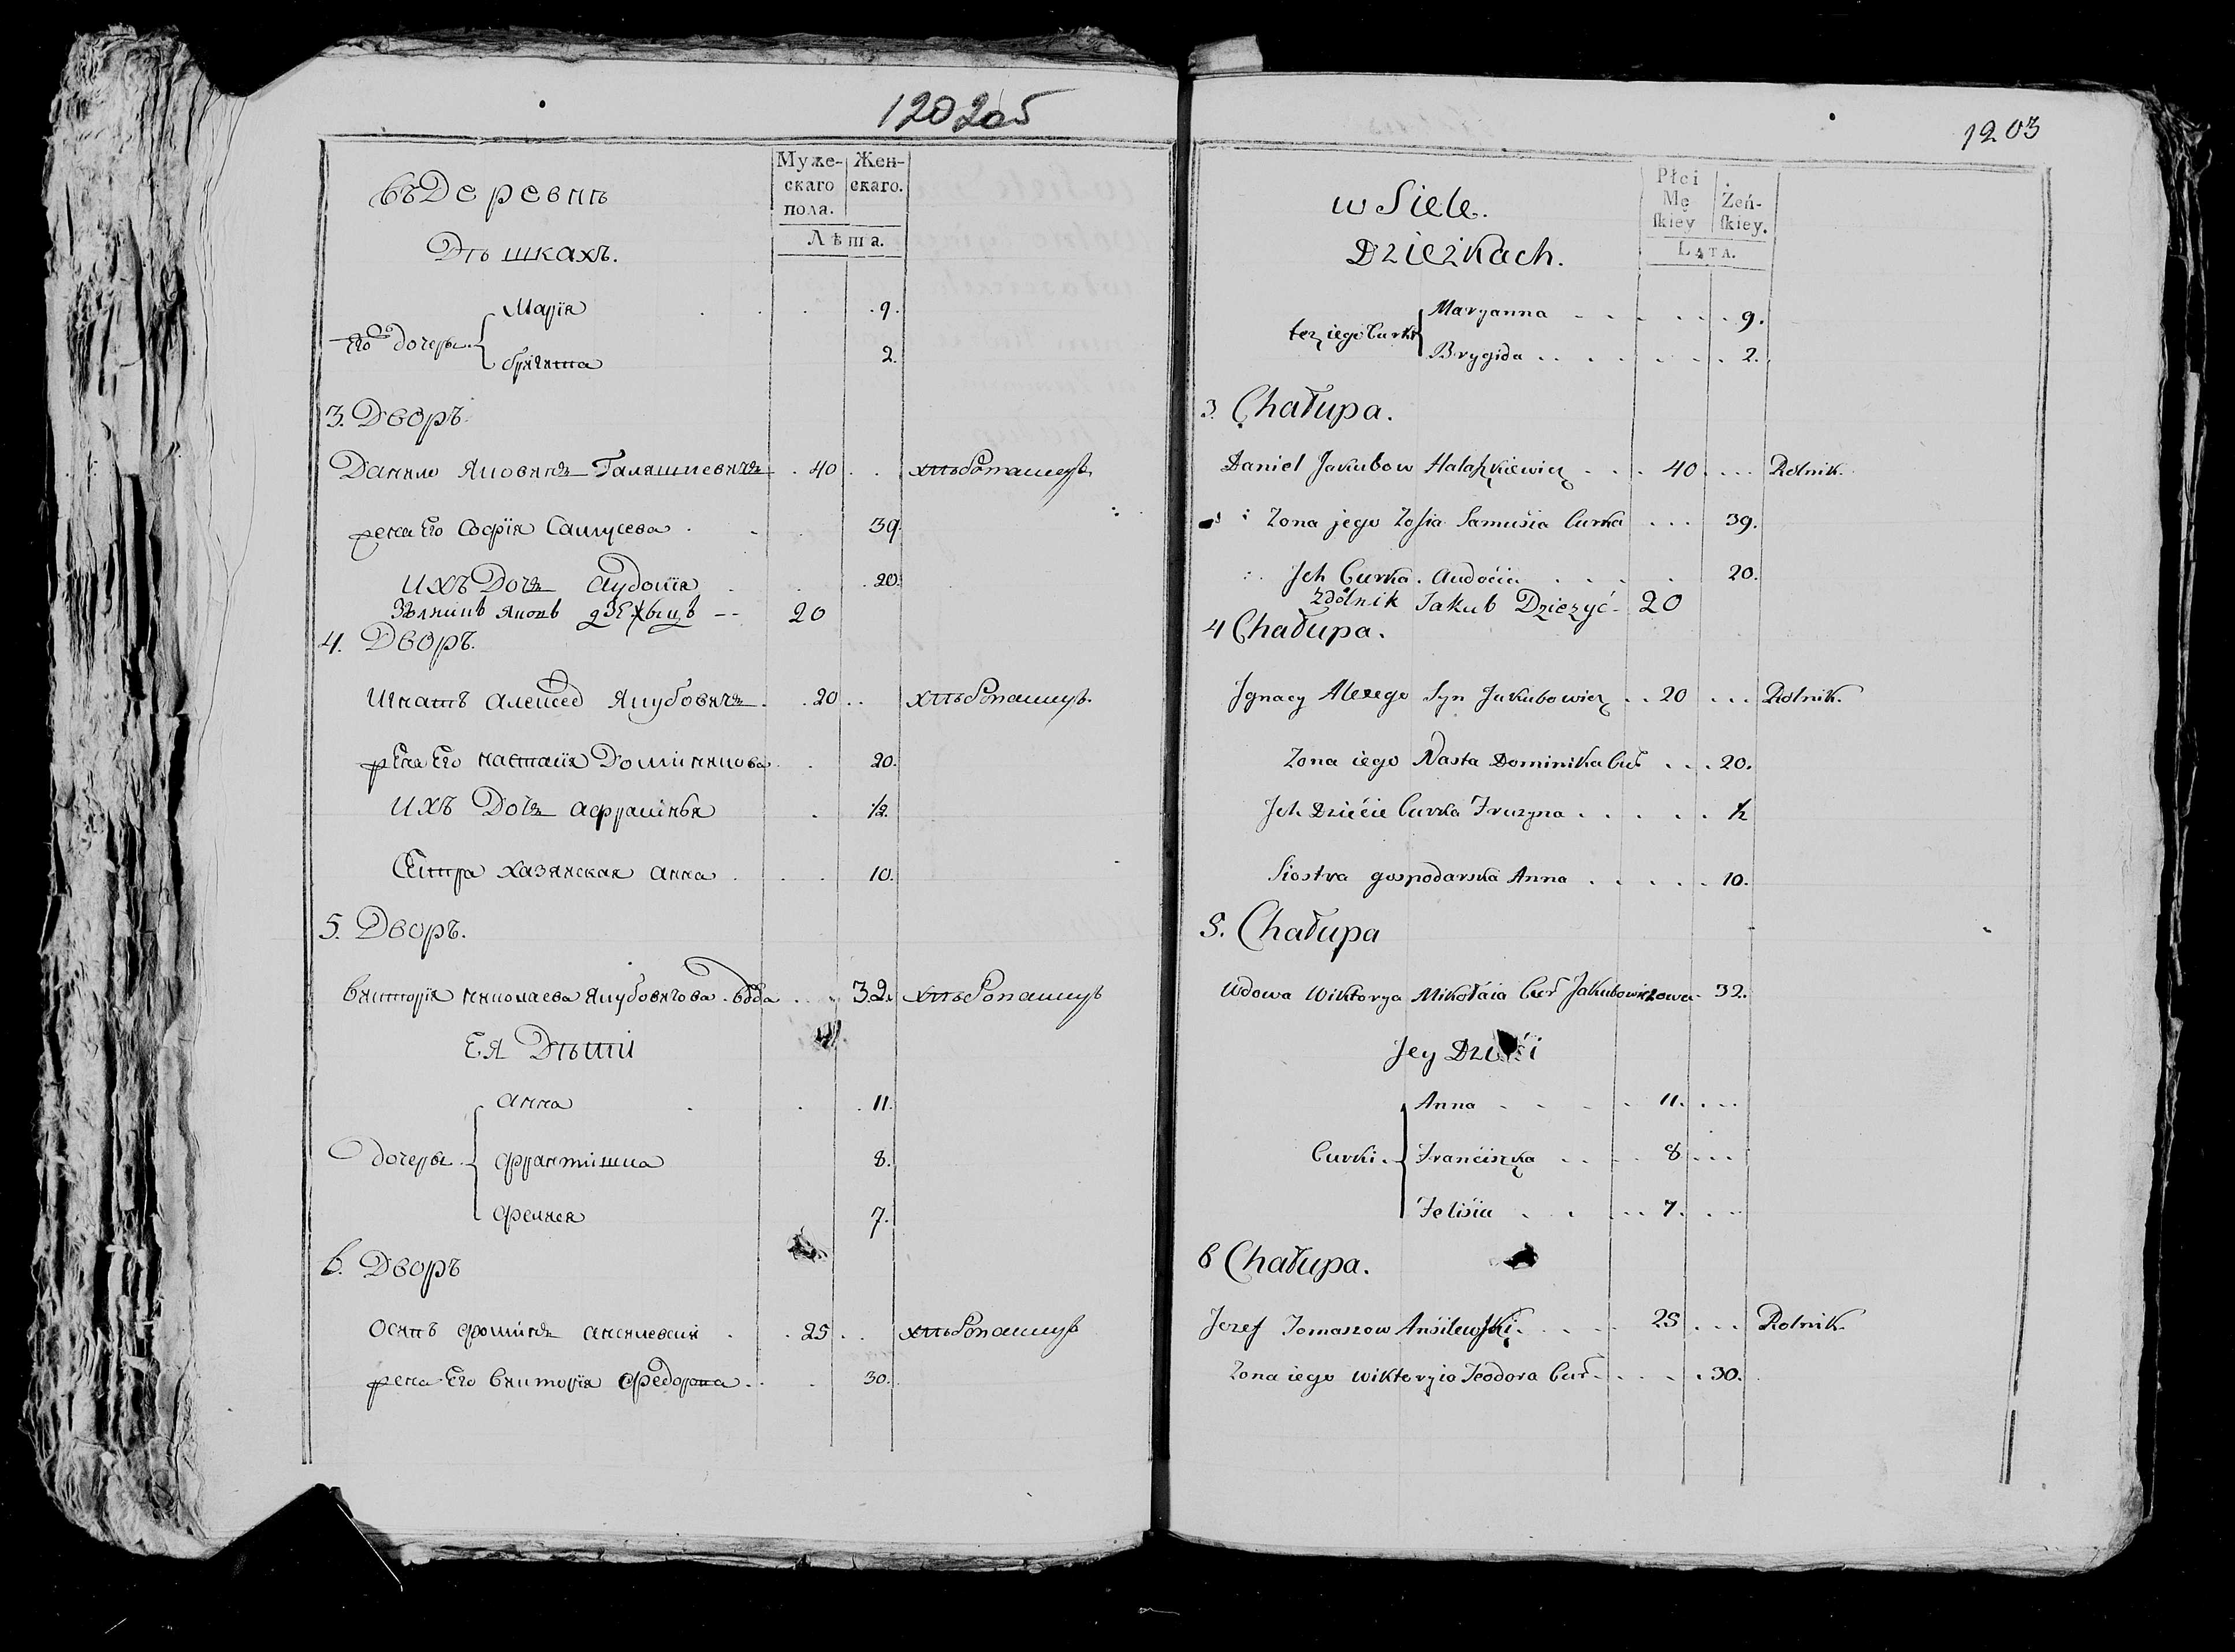 1202o5
Муже-скаго пола. Жен-скаго.
Лѣта.
въ Деревнѣ
Дѣшкахъ.
Его дочеры Марїя 9.
бригита 2.
3. Дворъ.
Данило Яковичъ Галяшкевичъ 40 хлѣбопашецъ
жена Его Софїя Самусева 39.
ихъ Дочь Аудоцїя 20.
Зѣлникъ Яковъ 20
4. Дворъ.
Игнатъ Алексѣев Якубовичъ 20 хлѣбопашецъ.
жена Его настасїя Домининова 20.
ихъ Дочь Афрасинья 1/2.
Сестра хазянская анна 10.
5. Дворъ.
викторїя николаева якубовичова вдова 32. хлѣбопашецъ
Ея Дѣти
Дочеры анна 11.
францишка 8.
фелися 7.
6. Дворъ
Осипъ фоминъ 25 хлѣбопашецъ
жена Его викторїя Федорова 30.
1203
Płci Mę ſkiey Żeń-ſkiey.
LATA.
w Siele.
Dzieżkach.
tez iego Curki Maryanna 9.
Brygida 2.
3. Chałupa.
Daniel Jakubow Halaszkiewicz 40 Rolnik.
Zona jego Zofia Samusia Curka 39.
Jch Curka. Audocia 20.
Zdolnik Jakub Dzieżyć 20
4 Chałupa.
Jgnacy Alexego Syn Jakubowicz 20 Rolnik.
Zona iego Nasta Dominika Cur 20.
Jch Dziécie Curka Fruzyna 1/2
Siostra gospodarska Anna 10.
5. Chałupa
Wdowa Wiktorya Mikołaia Cur Jakubowiczowa 32.
Jey Dzieci
Curki Anna 11.
Franciszka 8
Felisia 7.
6 Chałupa.
Jozef Tomaszow Ansilewski 25 Rolnik
Zona iego Wiktoryio Teodora Cur 30.